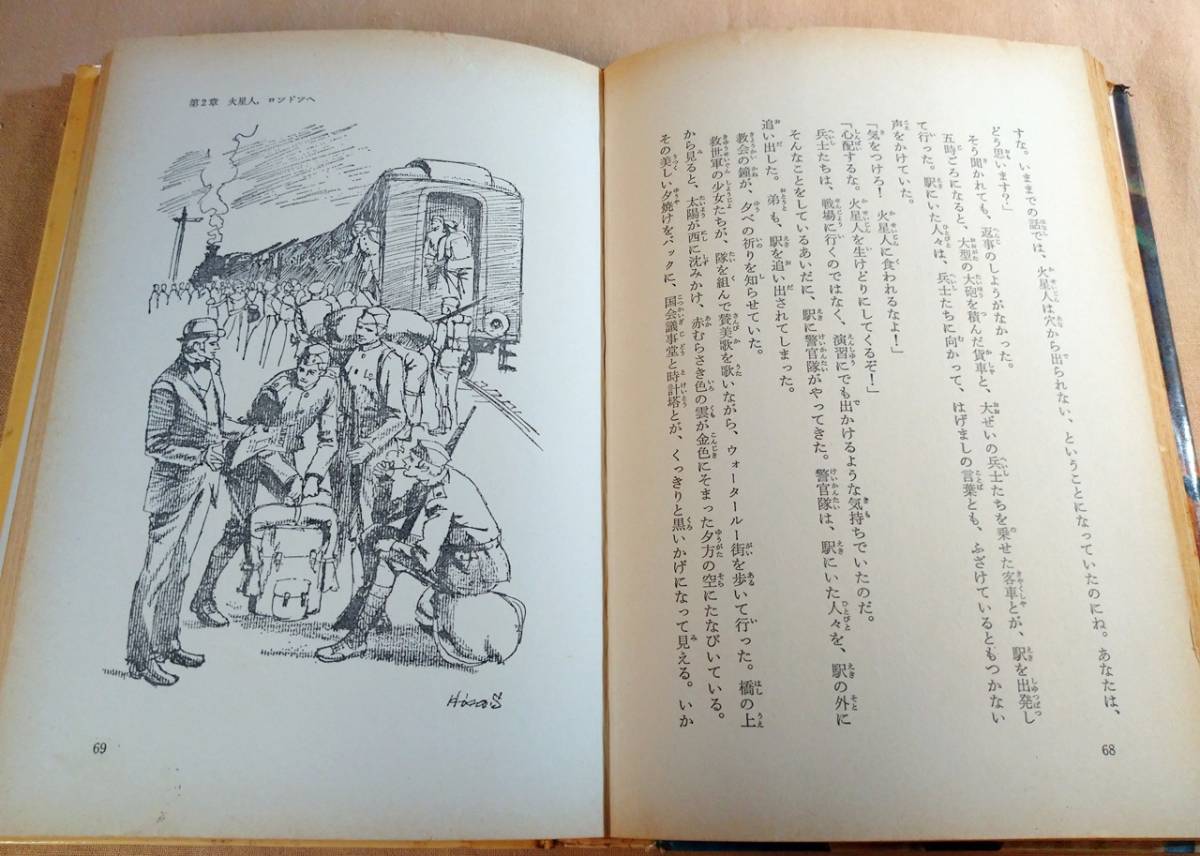 すな。いままでの話では、火星人は穴から出られない、ということになっていたのにね。あなたは、
どう思います?」
そう聞かれても、返事のしようがなかった。
五時ごろになると、大型の大砲を積んだ貨車と、大ぜいの兵士たちを乗せた客車とが、駅を出発し
て行った。駅にいた人々は、兵士たちに向かって、はげましの言葉とも、ふざけているともつかない
声をかけていた。
「気をつけろ! 火星人に食われるなよ!」
「心配するな。火星人を生けどりにしてくるぞ!」
兵士たちは、戦場に行くのではなく、演習にでも出かけるような気持ちでいたのだ。
そんなことをしているあいだに、駅に警官隊がやってきた。警官隊は、駅にいた人々を、駅の外に
追い出した。 弟も、駅を追い出されてしまった。
教会の鐘が、夕べの祈りを知らせていた。
救世軍の少女たちが、隊を組んで賛美歌を歌いながら、ウォータールー街を歩いて行った。橋の上
から見ると、太陽が西に沈みかけ、赤むらさき色の雲が金色にそまった夕方の空にたなびいている。
その美しい夕焼けをバックに、国会議事堂と時計塔とが、くっきりと黒いかげになって見える。いか
68
第2章 火星人,ロンドンへ
69